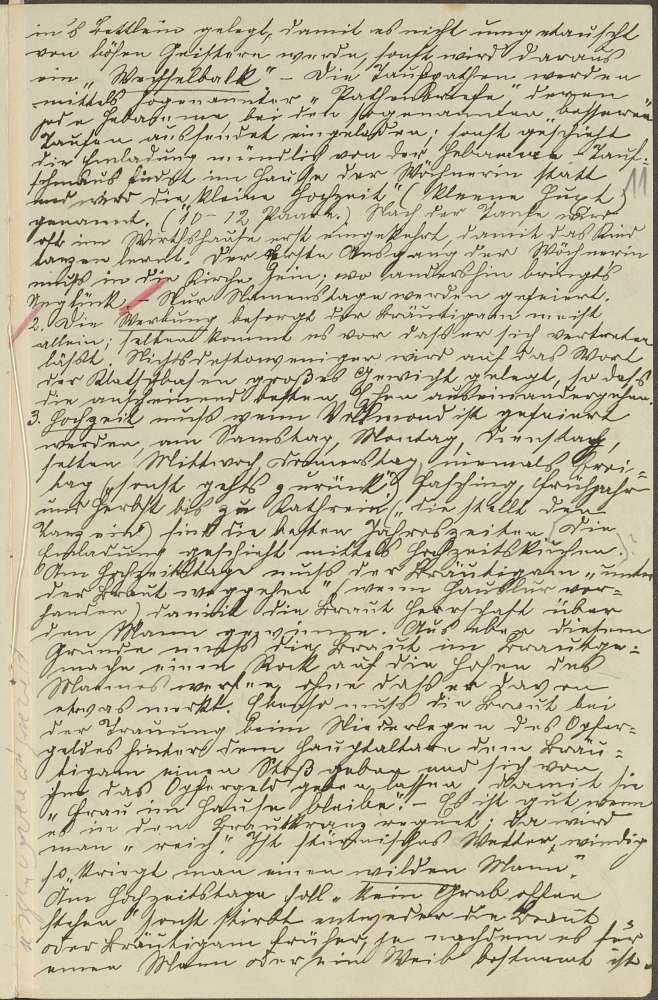 in's Bettlein gelegt, damit es nicht umgetauscht
von bösen Geistern werde, sonst wird daraus
ein „Wechselbalk“ – Die Taufpathen werden
mittels sogenannter „Pathenbriefe“ deren
jede Hebamme bei den sogenannten „besseren“
Taufen aussendet eingeladen; sonst geschieht
die Einladung mündlich von der Hebamme. – Tauf-
schmaus findet im Hause der Wöchnerin statt
und wird die „kleine Hochzeit“ (kleene Huxt)
11
genannt. (10–12 Paare.) Nach der Taufe wird
oft im Wirthshause erst eingekehrt, damit das Kind
tanzen lernt. Der erste Ausgang der Wöchnerin
muß in die Kirche sein; wo anders hin bringts
Unglück. – Nur Namenstage werden gefeiert.
2. Die Werbung besorgt der Bräutigam meist
allein; selten kommt es vor dass er sich vertreten
läßt. Nichtsdestoweniger wird auf das Wort
der Klatschbasen großes Gewicht gelegt, so daß
die anscheinend besten Ehen auseinandergehen.
3. Hochzeit muß wenn Vollmond ist gefeiert
werden, am Samstag, Montag, Dienstag,
selten Mittwoch Donnerstag niemals Frei-
tag („sonst gehts zurück“) Fasching, Frühjahr
und Herbst bis zu Kathrein („die stellt den
Tanz ein“) sind die besten Jahreszeiten. (Die
Einladung geschieht mittels Hochzeitskuchen.)?
Am Hochzeitstage muß der Bräutigam „unter
der Braut weggehen“ (wenn Hausflur vor-
handen) damit die Braut Herrschaft über
den Mann gewinne. Aus eben diesem
Grunde muß die Braut im Brautge-
mache einen Rock auf die Hosen des
Mannes werfen, ohne dass er davon
etwas merkt. Ebenso muß die Braut bei
der Trauung beim Niederlegen des Opfer-
geldes hinters dem Hauptaltare dem Bräu-
tigam einen Stoß geben und sich von
ihm das Opfergeld geben lassen, damit sie
„Frau im Hause bleibe“. – Es ist gut, wenn
es in den Brautkranz regnet; da wird
man „reich“. Ist stürmisches Wetter, windig
so „kriegt man einen wilden Mann“.
Am Hochzeitstage soll „kein Grab offen
stehen“ sonst stirbt entweder die Braut
oder Bräutigam früher, je nachdem es für
einen Mann oder ein Weib bestimmt ist.